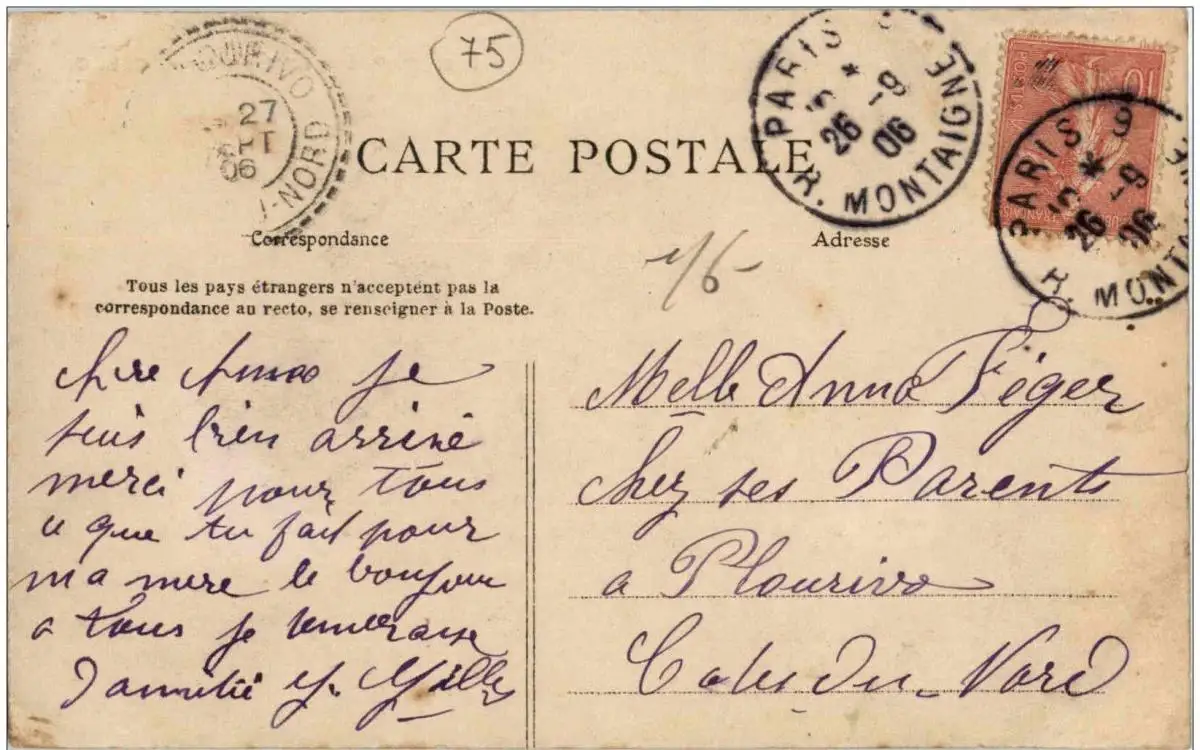 75
PLOURIVO
27
SEPT
06
NORD
PARIS 8
*
5 26 -9 06
R. MONTAIGNE
10
PARIS 8
*
5 26 -9 06
R. MONTAIGNE
CARTE POSTALE
Correspondance
Adresse
Tous les pays étrangers n'acceptent pas la
correspondance au recto, se renseigner à la Poste.
Chre Anna je
suis bien arrivé
merci pour tous
ce que tu fait pour
ma mere le bonjour
a tous je
d'amitié
Melle Anna Féger
chez ses Parents
a Plourivo
Cotes du Nord